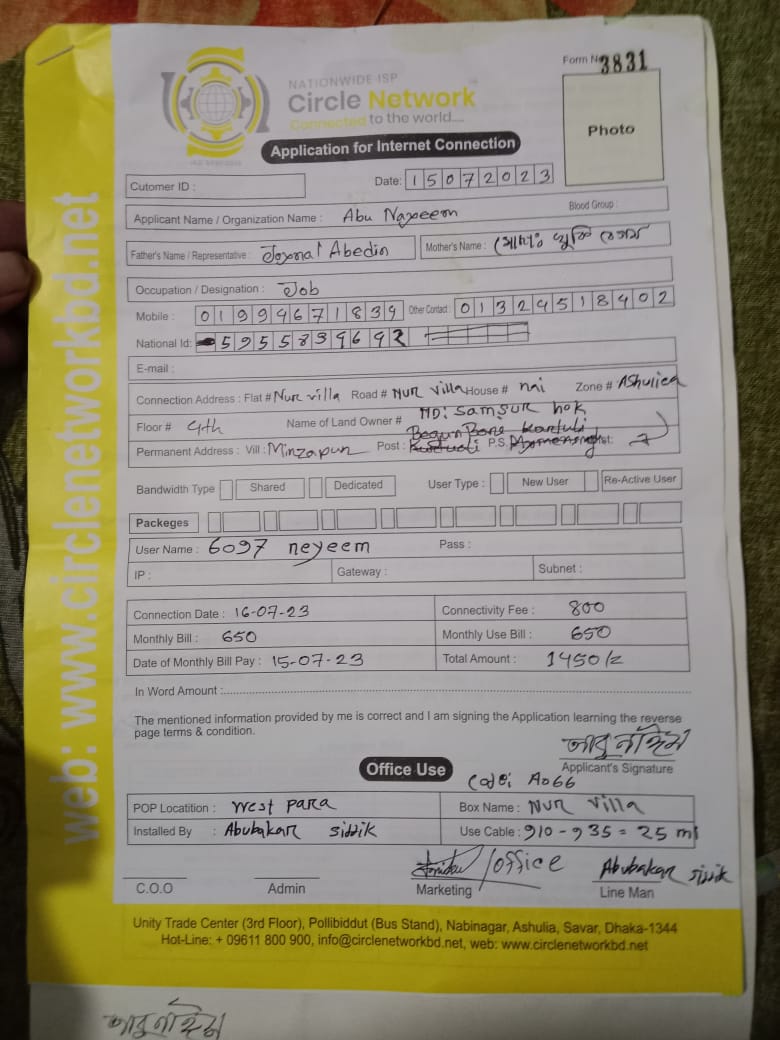 Form No 3831
NATIONWIDE ISP
Circle Network
Connected to the world....
Photo
Application for Internet Connection
Cutomer ID :
Date: 15072023
Applicant Name / Organization Name : Abu Nayeem
Blood Group :
Father's Name / Representative : Joynal Abedin
Mother's Name : মোসাঃ খুকি বেগম
Occupation / Designation : Job
Mobile : 01994671839 Other Contact : 01324518402
National Id: 5955839692
E-mail :
Connection Address : Flat # Nur villa Road # Nur villa House # nai Zone # Ashuliea
Floor # 4th Name of Land Owner # MD: Samsur hok
Begun Bone Kantuli
Permanent Address : Vill : Minzapun Post : P.S.
Bandwidth Type Shared Dedicated User Type : New User Re-Active User
Packeges
User Name : 6097 neyeem Pass :
IP : Gateway : Subnet :
Connection Date : 16-07-23 Connectivity Fee : 800
Monthly Bill : 650 Monthly Use Bill : 650
Date of Monthly Bill Pay : 15-07-23 Total Amount : 1450/=
In Word Amount :
The mentioned information provided by me is correct and I am signing the Application learning the reverse
page terms & condition.
আবু নাঈম
Applicant's Signature
Office Use
Code: A066
POP Locatition : West para Box Name : Nur villa
Installed By : Abubakar siddik Use Cable : 910-935=25 mt
/office Abubakar siddik
C.O.O Admin Marketing Line Man
Unity Trade Center (3rd Floor), Pollibiddut (Bus Stand), Nabinagar, Ashulia, Savar, Dhaka-1344
Hot-Line: + 09611 800 900, info@circlenetworkbd.net, web: www.circlenetworkbd.net
web: www.circlenetworkbd.net
আবু নাঈম